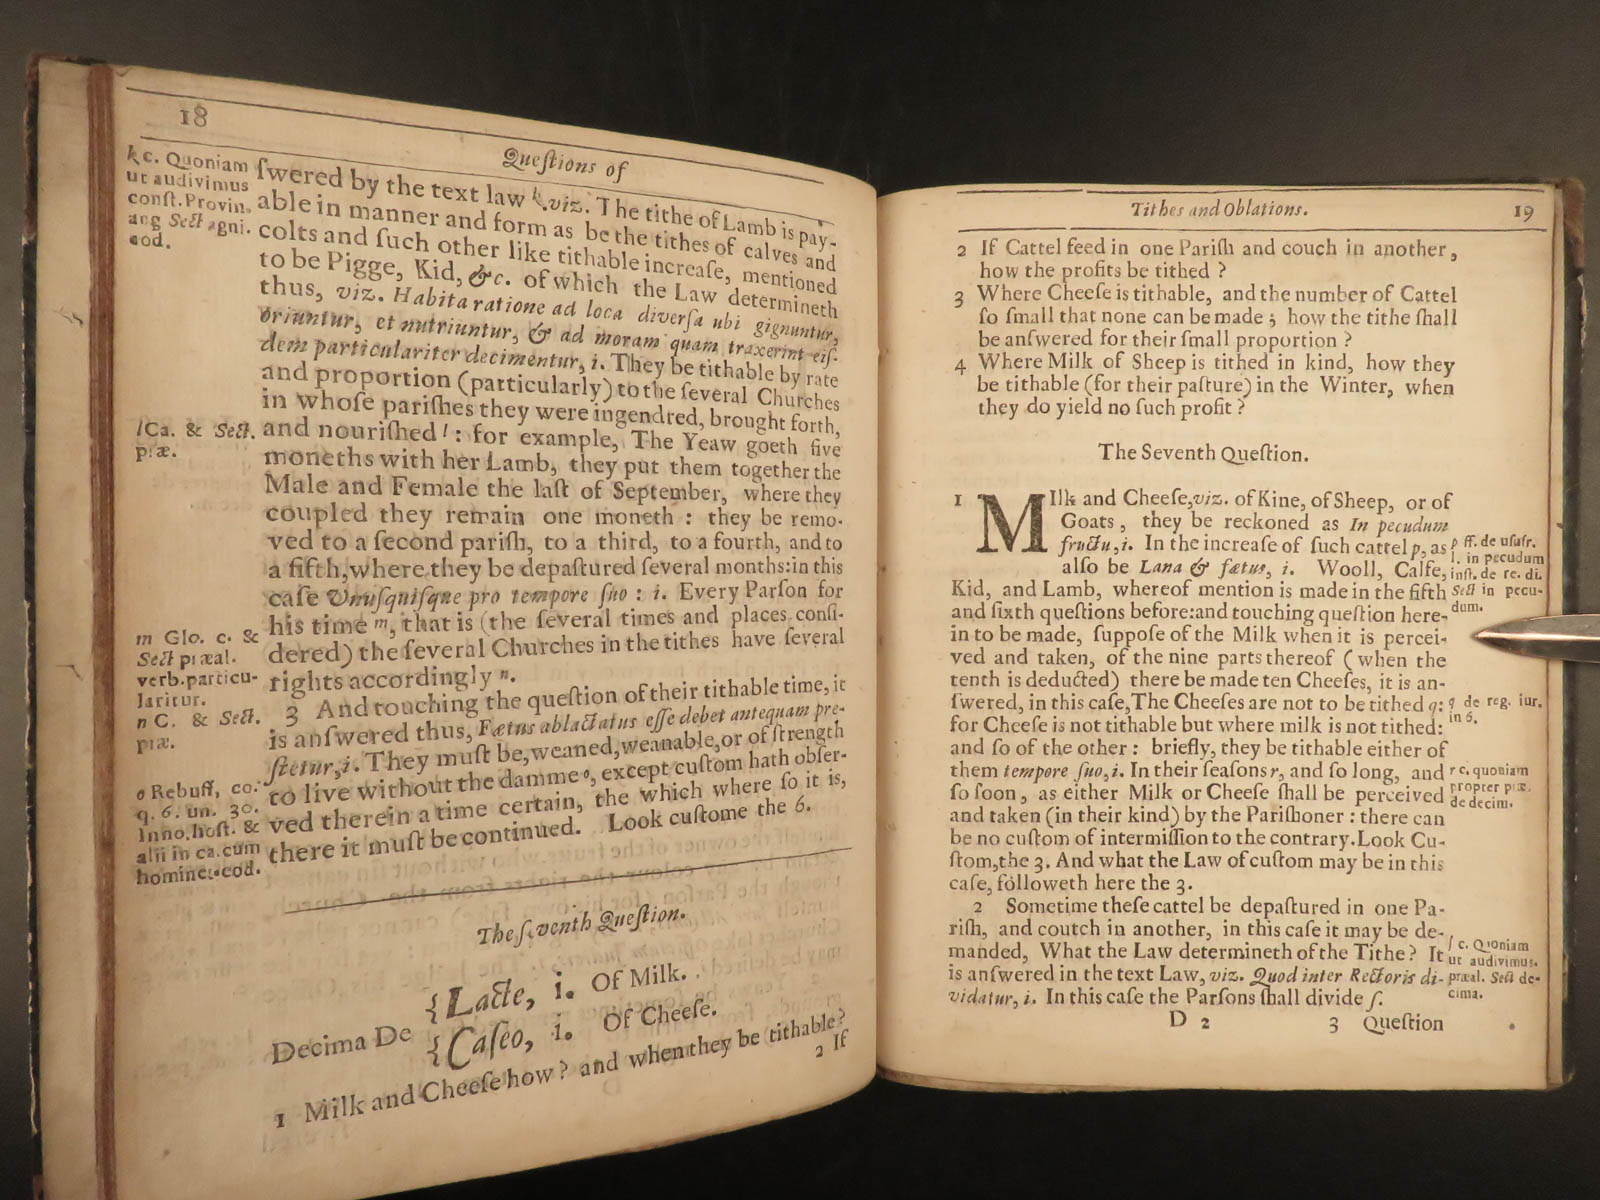 18
Queſtions of
k c. Quoniam
ut audivimus
conſt. Provin.
ang Sect agni.
eod.
ſwered by the text law k. viz. The tithe of Lamb is pay-
able in manner and form as be the tithes of calves and
colts and ſuch other like tithable increaſe, mentioned
to be Pigge, Kid, &c. of which the Law determineth
thus, viz. Habita ratione ad loca diverſa ubi gignuntur,
oriuntur, et nutriuntur, & ad moram quam traxerint eiſ-
dem particulariter decimentur, i. They be tithable by rate
and proportion (particularly) to the ſeveral Churches
in whoſe pariſhes they were ingendred, brought forth,
and nouriſhed l : for example, The Yeaw goeth five
moneths with her Lamb, they put them together the
Male and Female the laſt of September, where they
coupled they remain one moneth : they be remo-
ved to a ſecond pariſh, to a third, to a fourth, and to
a fifth, where they be depaſtured ſeveral months: in this
caſe Unuſquiſque pro tempore ſuo : i. Every Parſon for
his time m, that is (the ſeveral times and places conſi-
dered) the ſeveral Churches in the tithes have ſeveral
rights accordingly n.
l Ca. & Sect.
præ.
m Glo. c. &
Sect præal.
verb. particu-
laritur.
n C. & Sect.
præ.
3 And touching the queſtion of their tithable time, it
is anſwered thus, Fætus ablactatus eſſe debet antequam pre-
ſtetur, i. They muſt be, weaned, weanable, or of ſtrength
to live without the damme o, except cuſtom hath obſer-
ved therein a time certain, the which where ſo it is,
there it muſt be continued. Look cuſtome the 6.
o Rebuff, co.
q. 6. un. 30.
Inno. hoſt. &
alii in ca. cum
homines eod.
The ſeventh Queſtion.
Decima De
{Lacte, i. Of Milk.
{Caſeo, i. Of Cheeſe.
1 Milk and Cheeſe how ? and when they be tithable ?
2 If
Tithes and Oblations.
19
2 If Cattel feed in one Pariſh and couch in another,
how the profits be tithed ?
3 Where Cheeſe is tithable, and the number of Cattel
ſo ſmall that none can be made ; how the tithe ſhall
be anſwered for their ſmall proportion ?
4 Where Milk of Sheep is tithed in kind, how they
be tithable (for their paſture) in the Winter, when
they do yield no ſuch profit ?
The Seventh Queſtion.
1 MIlk and Cheeſe, viz. of Kine, of Sheep, or of
Goats, they be reckoned as In pecudum
fructu, i. In the increaſe of ſuch cattel p, as
alſo be Lana & fætus, i. Wooll, Calfe,
Kid, and Lamb, whereof mention is made in the fifth
and ſixth queſtions before: and touching queſtion here-
in to be made, ſuppoſe of the Milk when it is percei-
ved and taken, of the nine parts thereof (when the
tenth is deducted) there be made ten Cheeſes, it is an-
ſwered, in this caſe, The Cheeſes are not to be tithed q:
for Cheeſe is not tithable but where milk is not tithed:
and ſo of the other : briefly, they be tithable either of
them tempore ſuo, i. In their ſeaſons r, and ſo long, and
ſo ſoon, as either Milk or Cheeſe ſhall be perceived
and taken (in their kind) by the Pariſhoner : there can
be no cuſtom of intermiſſion to the contrary. Look Cu-
ſtom, the 3. And what the Law of cuſtom may be in this
caſe, followeth here the 3.
p ff. de uſufr.
l. in pecudum
inſt. de re. di.
Sect in pecu-
dum.
q de reg. iur.
in 6.
r c. quoniam
propter præ.
de decim.
2 Sometime theſe cattel be depaſtured in one Pa-
riſh, and coutch in another, in this caſe it may be de-
manded, What the Law determineth of the Tithe ? It
is anſwered in the text Law, viz. Quod inter Rectoris di-
vidatur, i. In this caſe the Parſons ſhall divide ſ.
ſ c. Quoniam
ut audivimus.
præal. Sect de-
cima.
D 2
3 Queſtion